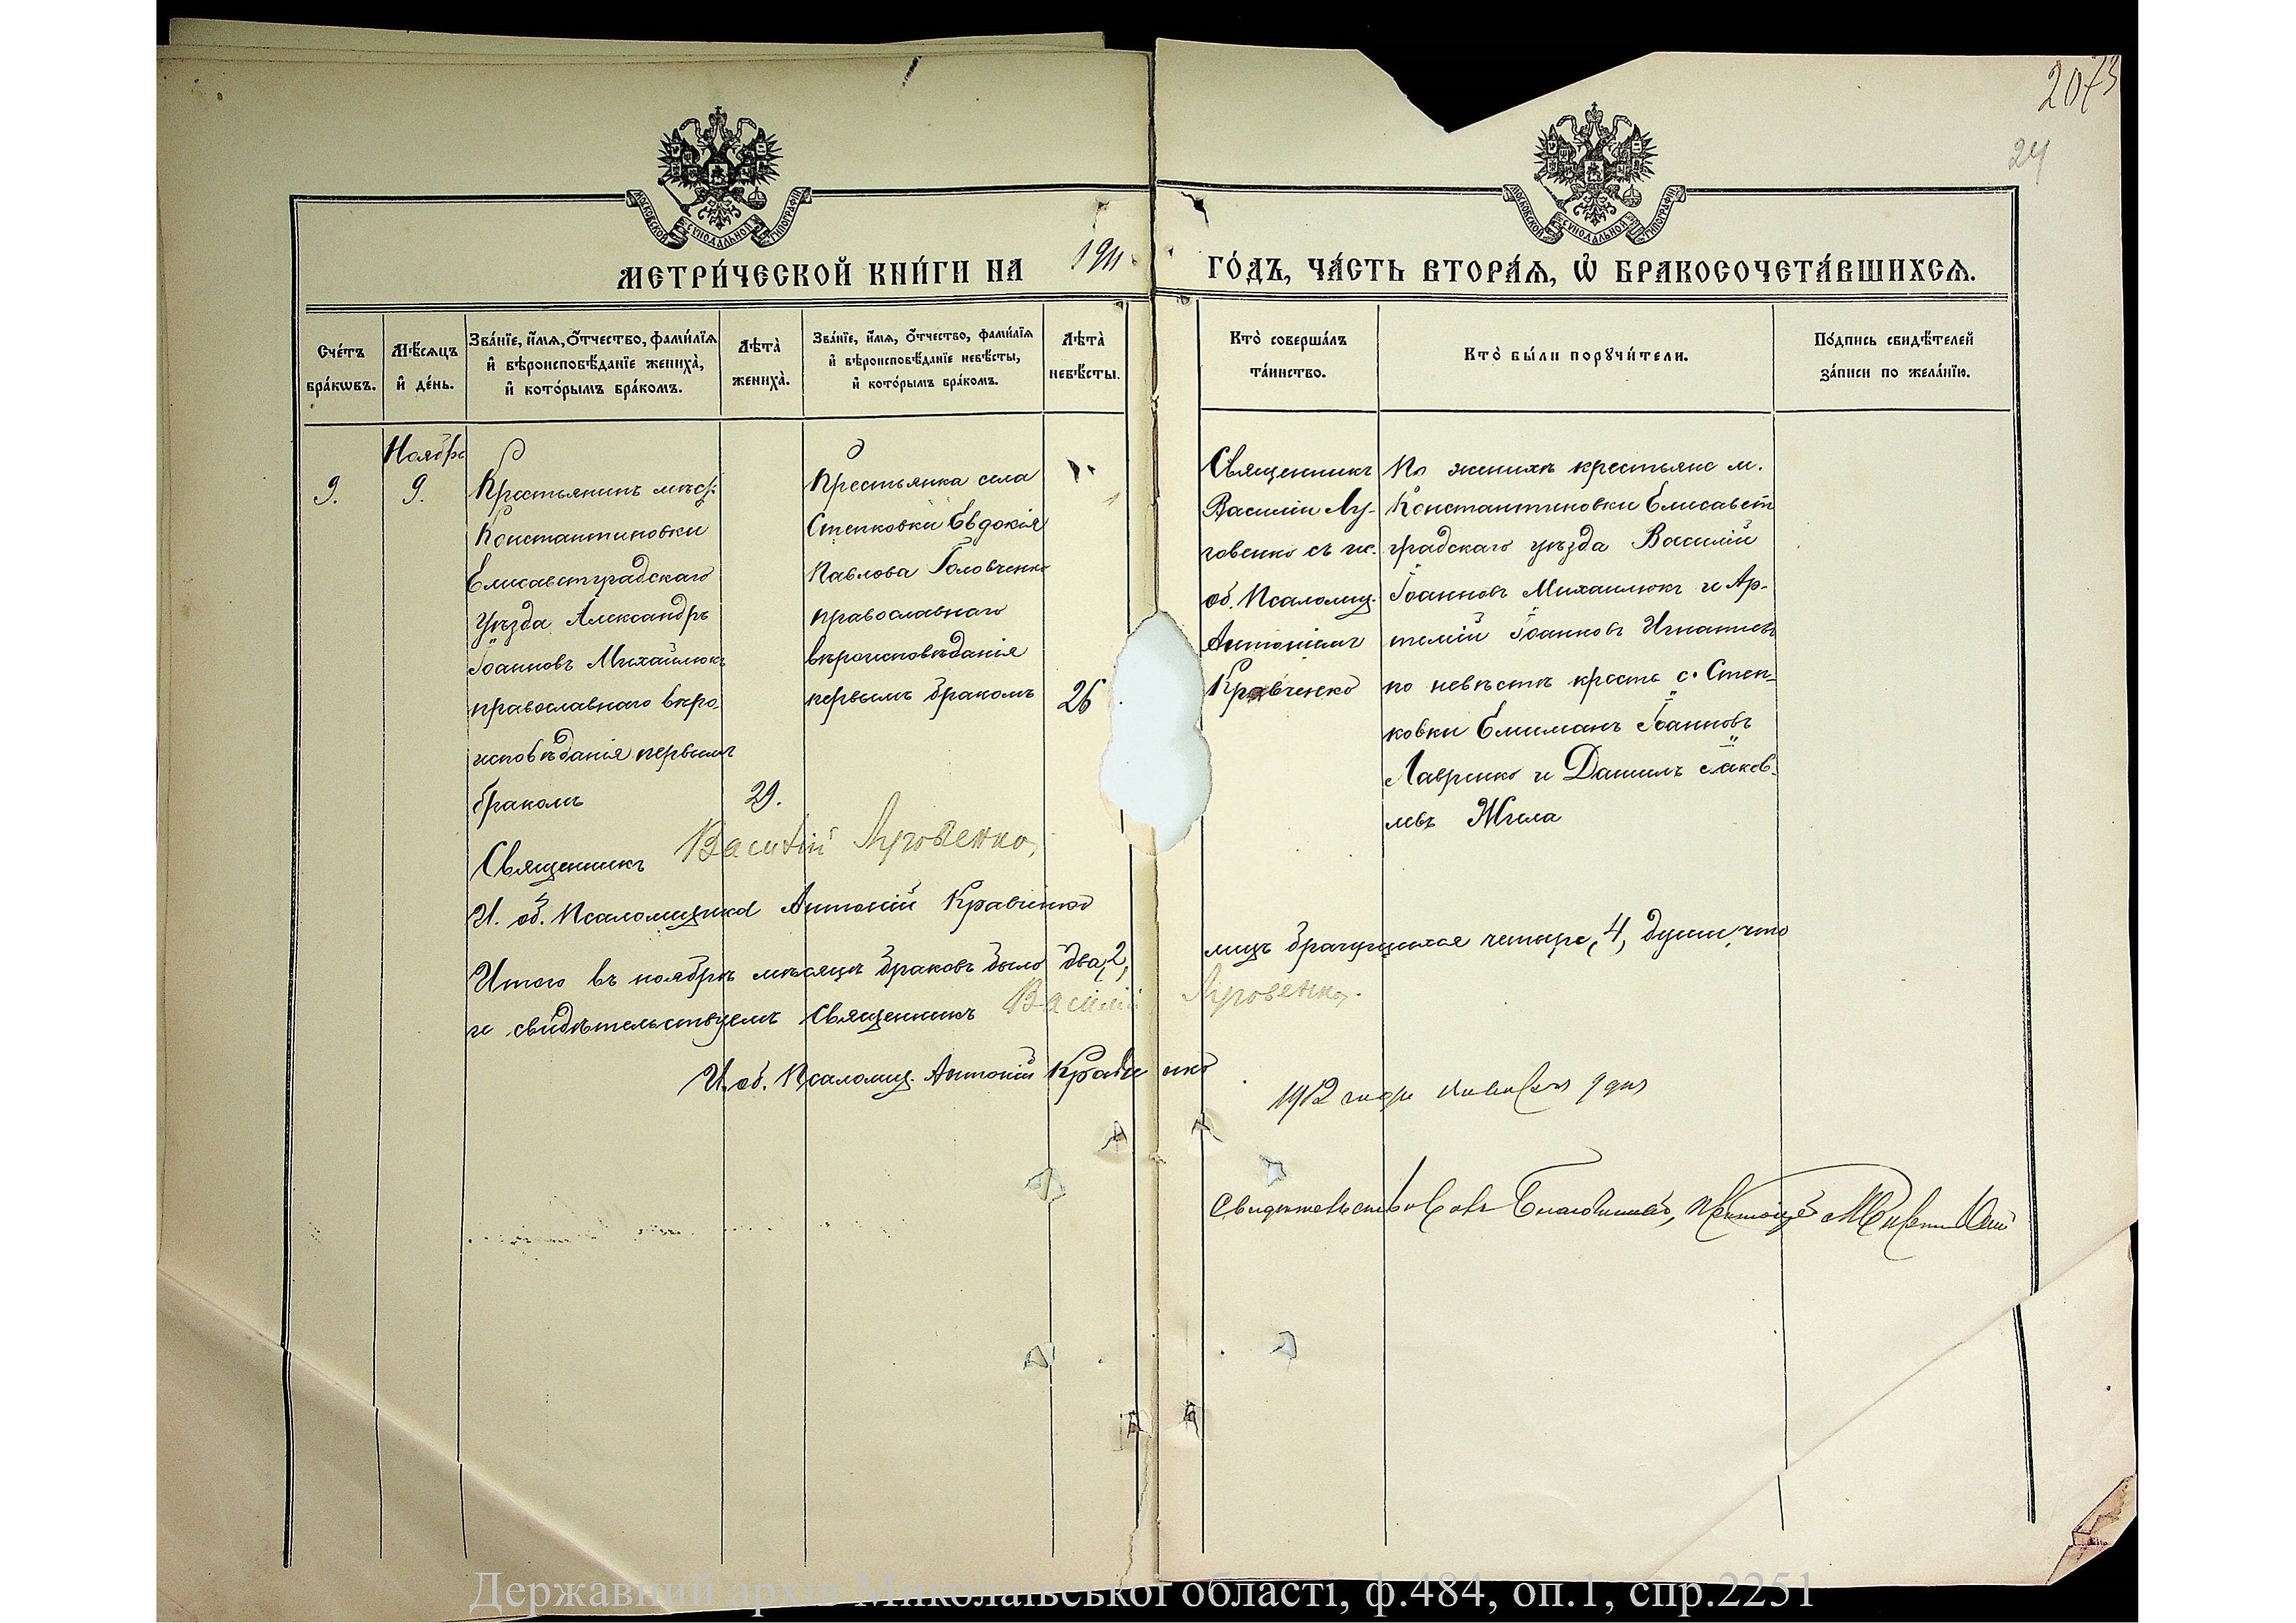 2073
24
МОСКОВСКОЙ СѴНОДАЛЬНОЙ ТИПОГРАФІИ
МОСКОВСКОЙ СѴНОДАЛЬНОЙ ТИПОГРАФІИ
МЕТРИ́ЧЕСКОЙ КНИ́ГИ НА 1911 ГО́ДЪ, ЧА́СТЬ ВТОРА́Я, Ѡ БРАКОСОЧЕТА́ВШИХСЯ.
Сче́тъ бра́кωвъ.
Мѣ́сяцъ и де́нь.
Зва́нїе, и́мя, о́тчество, фами́лїя и вѣроисповѣ́данїе жениха̀, и кото́рымъ бра́комъ.
Лѣта̀ жениха̀.
Зва́нїе, и́мя, о́тчество, фами́лїя и вѣроисповѣ́данїе невѣ́сты, и кото́рымъ бра́комъ.
Лѣта̀ невѣ́сты.
Кто̀ соверша́лъ та́инство.
Кто̀ бы́ли порꙋчи́тели.
По́дпись свидѣ́телей за́писи по жела́нїю.
9.
Ноября
9.
Крестьянинъ мѣст.
Константиновки
Елисаветградскаго
уѣзда Александръ
Іоанновъ Михайлюкъ
православнаго вѣро
исповѣданія первымъ
бракомъ
29.
Крестьянка села
Степковки Евдокія
Павлова Головченко
православнаго
вѣроисповѣданія
первымъ бракомъ
26
Священникъ
Василій Лу-
говенко съ ис.
об. Псаломщ.
Антоніемъ
Кравченко
По женихѣ крестьяне м.
Константиновки Елисавет
градскаго уѣзда Василій
Іоанновъ Михайлюкъ и Ар-
темій Іоанновъ Игнатьевъ
по невѣстѣ крестъ с. Степ-
ковки Емиліанъ Іоанновъ
Лавренко и Даніилъ Іаков-
левъ Жила
Священникъ Василій Луговенко,
И. об. Псаломщика Антоній Кравченко
Итого въ ноябрѣ мѣсяцѣ браковъ было два, 2, лицъ брачущихся четыре, 4, души, что
и свидѣтельствуемъ Священникъ Василій Луговенко.
И. об. Псаломщ. Антоній Кравченко
1912 года января 9 дня
Свидѣтельствовалъ Благочинный, Протоіерей
Державний архів Миколаївської області, ф.484, оп.1, спр.2251